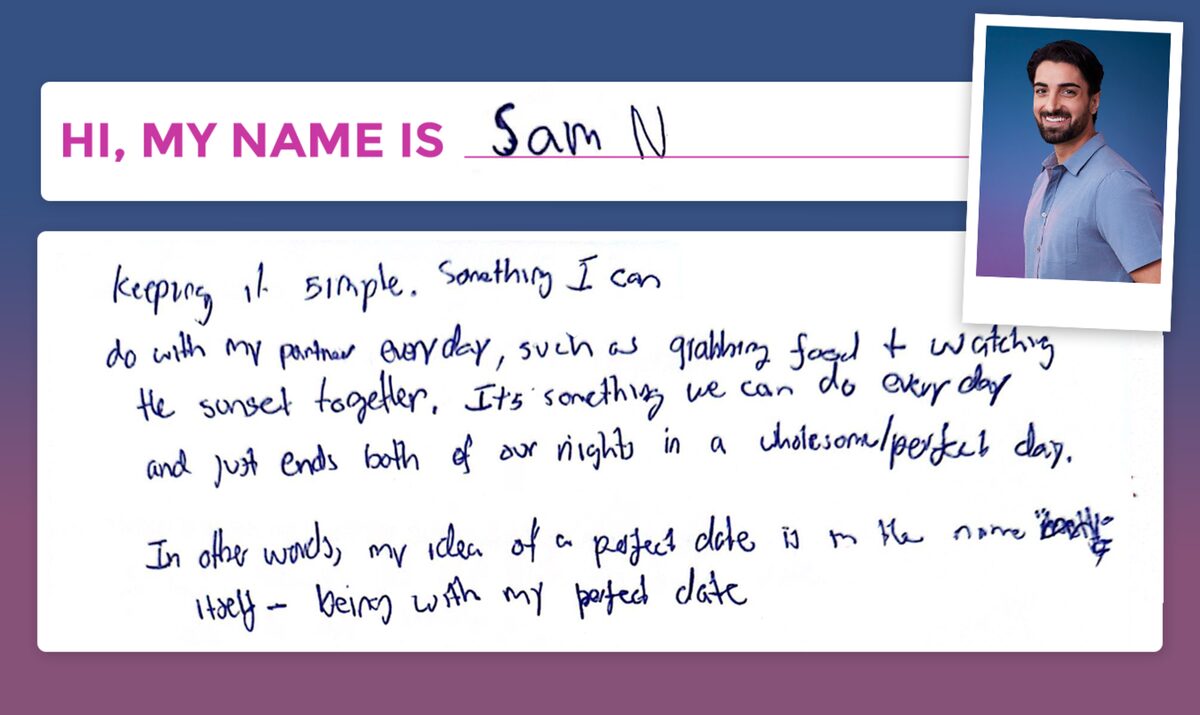 HI, MY NAME IS Sam N
Keeping it simple. Something I can
do with my partner everyday, such as grabbing food + watching
the sunset together. Its something we can do every day
and just ends both of our nights in a wholesome/perfect day.
In other words, my idea of a perfect date is in the name
itself - being with my perfect date